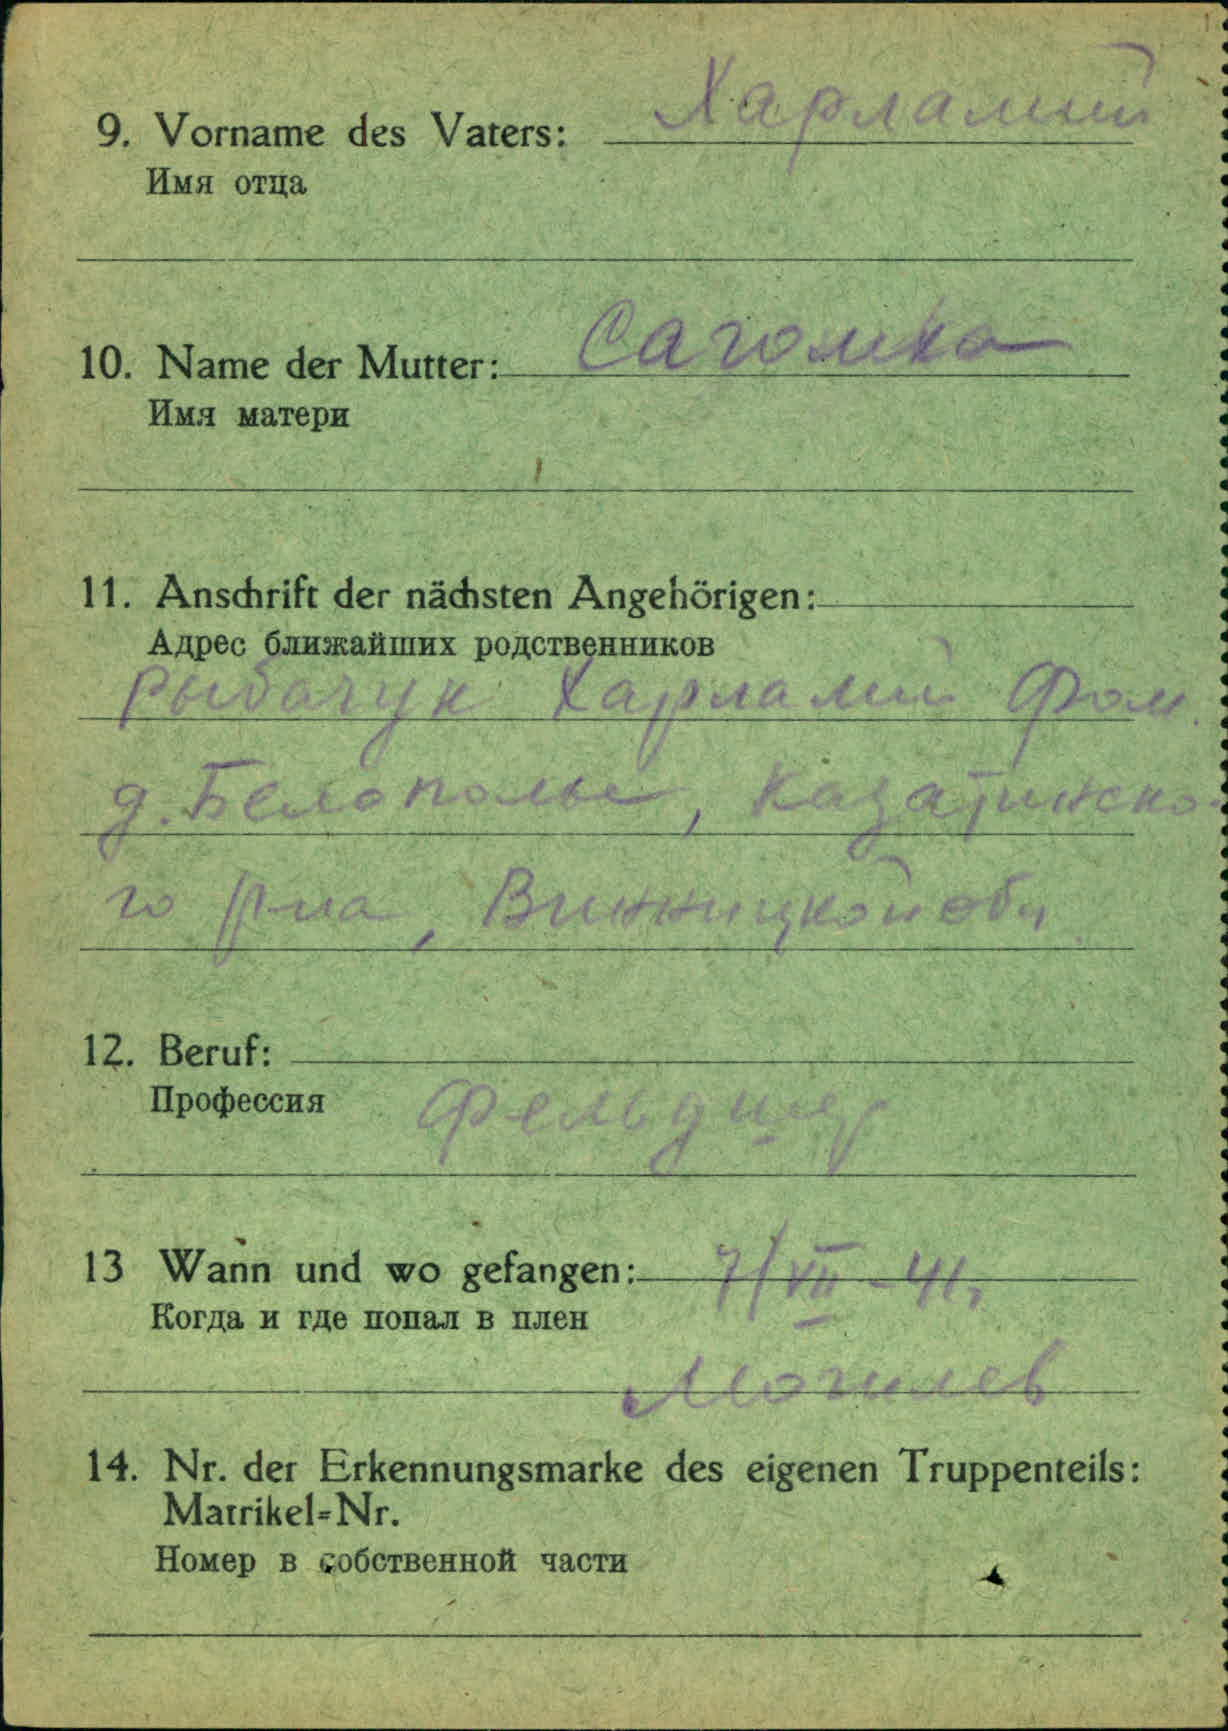 9. Vorname des Vaters: Харлампий
Имя отца
10. Name der Mutter: Сагомка
Имя матери
11. Anschrift der nächsten Angehörigen:
Адрес ближайших родственников
Рыбачук Харлампий Фом.
д. Белополье, Казатинско-
го р-на, Винницкой обл.
12. Beruf:
Профессия Фельдшер
13 Wann und wo gefangen: 7/VII-41,
Когда и где попал в плен
Могилев
14. Nr. der Erkennungsmarke des eigenen Truppenteils:
Matrikel=Nr.
Номер в собственной части